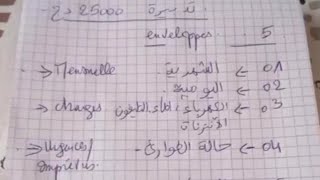 25000 دج
enveloppes 5
→ Mensuelle الشهرية ← 01
اليومية ← 02
→ charges الكهرباء، الماء، التليفون ← 03
الأنترنات
→ Urgences/ حالة الطوارئ ← 04
imprévus.